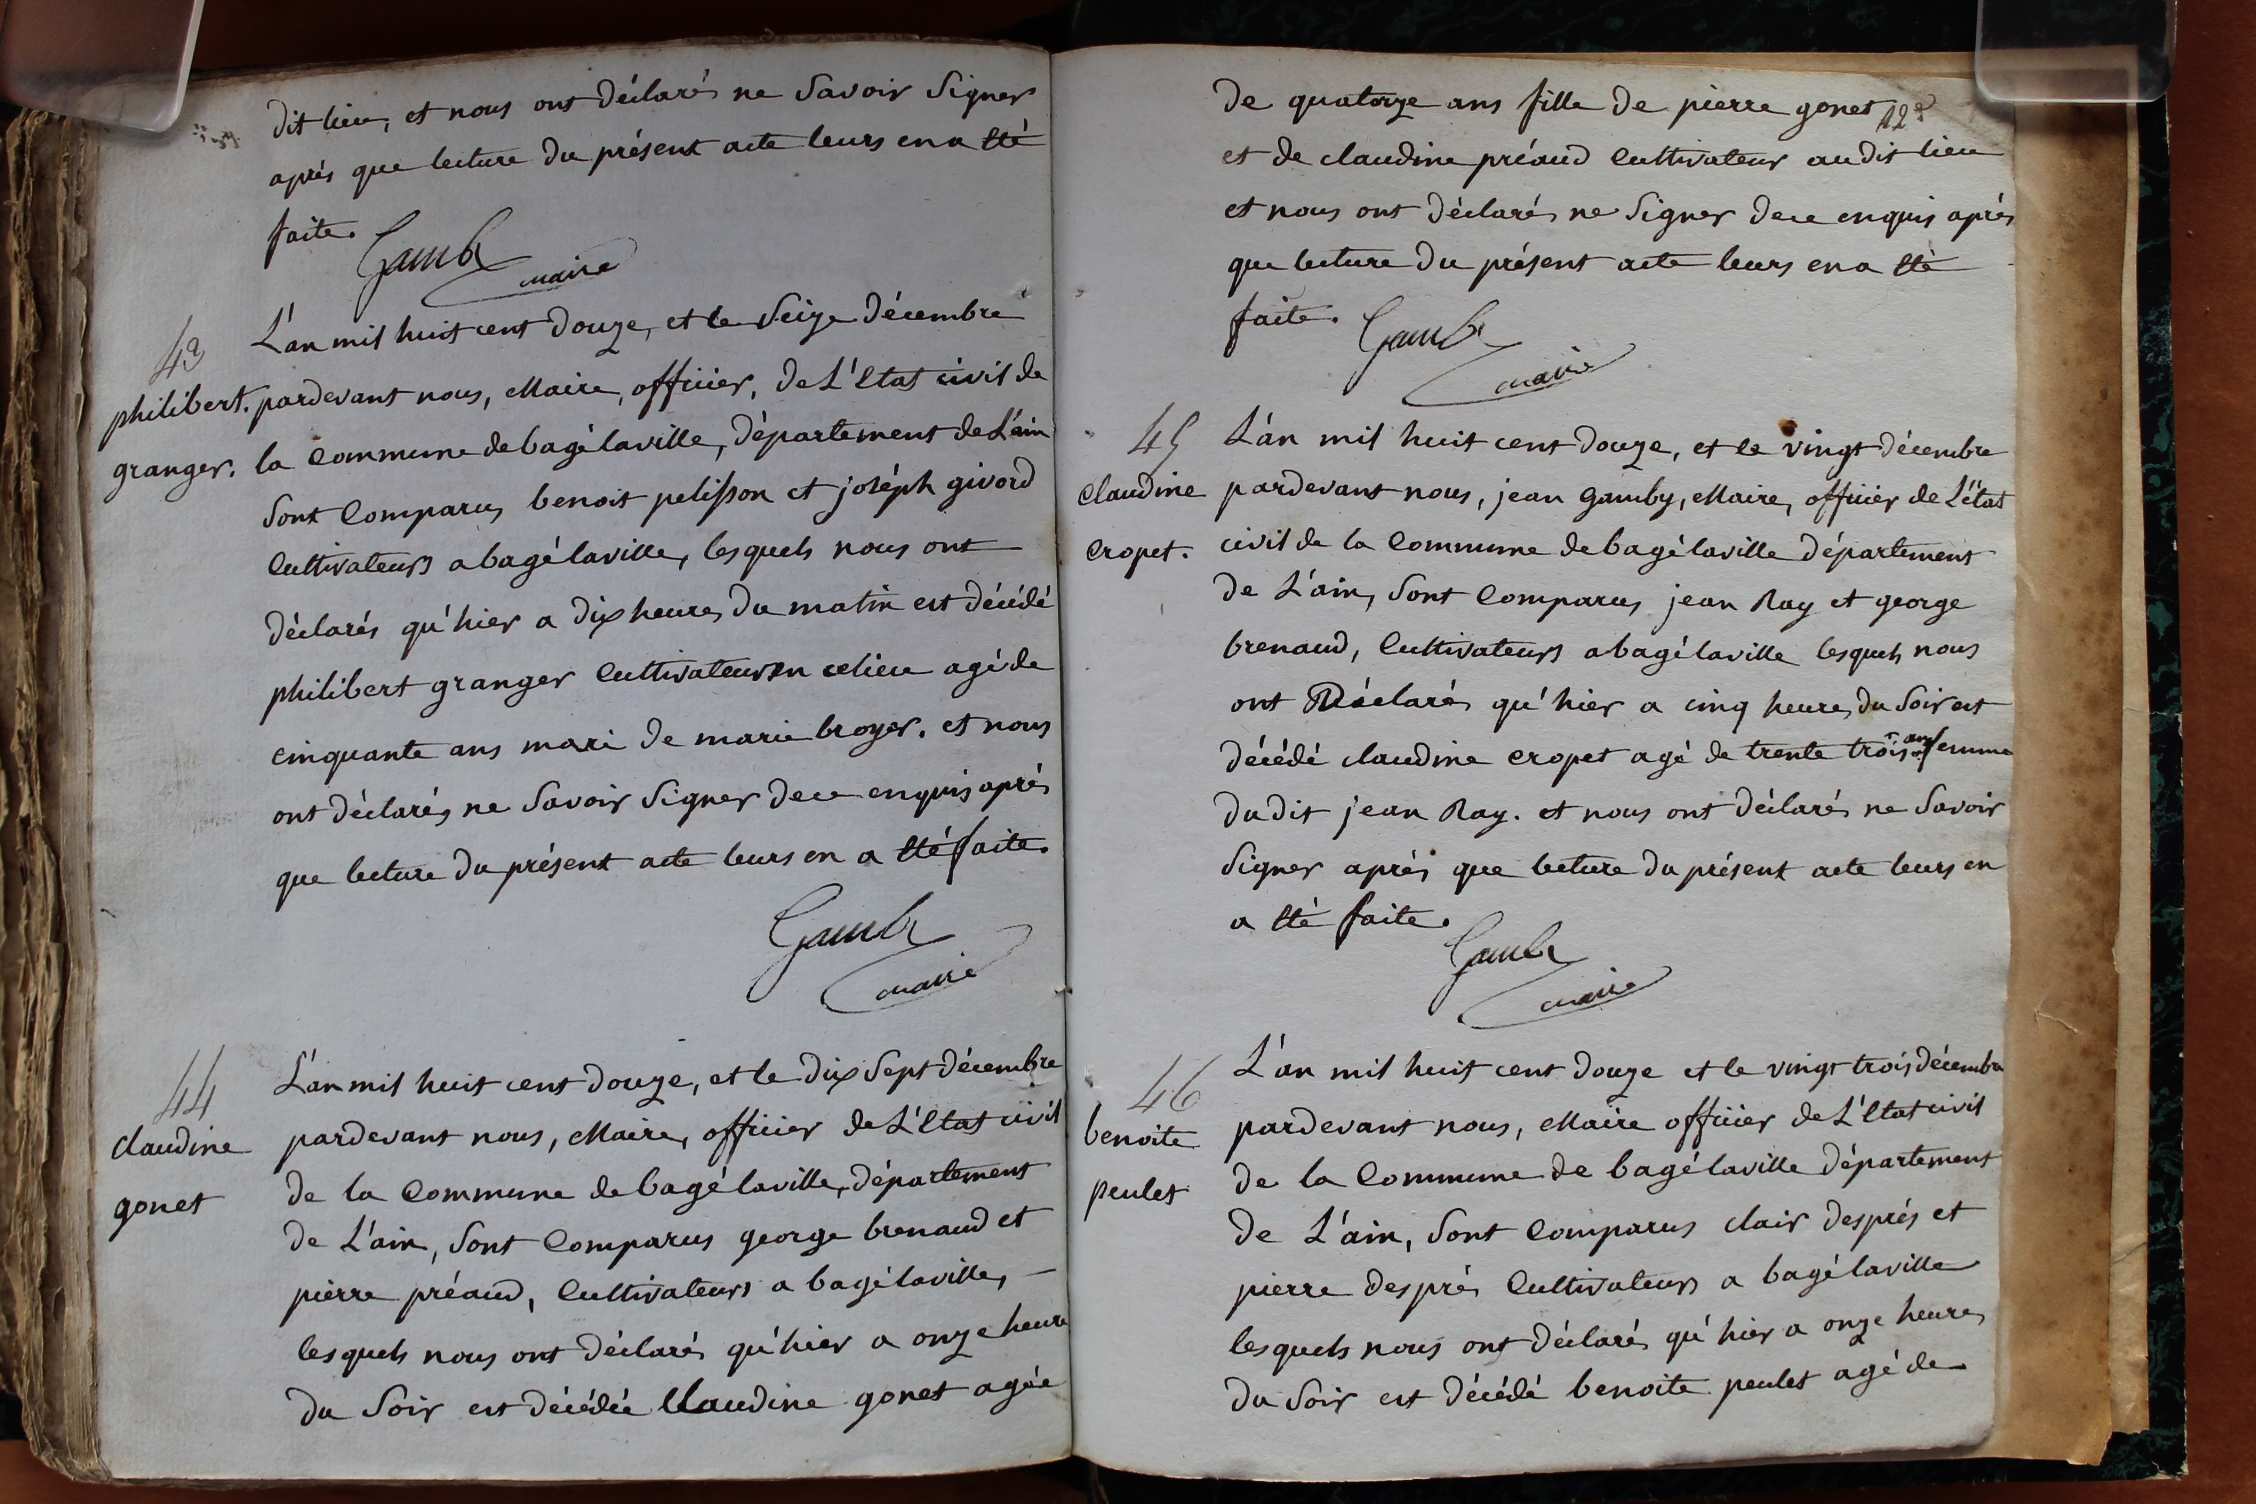 dit lieu, et nous ont déclarés ne Savoir Signer
aprés que lecture du présent acte leurs en a été
faite.
Gamby
maire
43
philibert.
granger.
L'an mil huit cent douze, et le Seize décembre
pardevant nous, Maire, officier, de L'Etat civil de
la Commune de bagé laville, département de L'ain
Sont Comparus benoit pelisson et joséph givord
Cultivateurs a bagé laville, lesquels nous ont
déclarés qu'hier a dix heures du matin est décédé
philibert granger Cultivateur en ce lieu agé de
cinquante ans mari de marie broyer. et nous
ont déclarés ne Savoir Signer de ce enquis aprés
que lecture du présent acte leurs en a été faite.
Gamby
maire
44
Claudine
gonet
L'an mil huit cent douze, et le dix Sept décembre
pardevant nous, Maire, officier de L'Etat civil
de la Commune de bagé laville, département
de L'ain, Sont Comparus george brenaud et
pierre préaud, Cultivateurs a bagé laville,
lesquels nous ont déclarés qu'hier a onze heure
du Soir est décédée Claudine gonet agée
122
de quatorze ans fille de pierre gonet
et de claudine préaud Cultivateur au dit lieu
et nous ont déclarés ne Signer de ce enquis aprés
que lecture du présent acte leurs en a été
faite.
Gamby
maire
45
Claudine
Cropet.
L'an mil huit cent douze, et le vingt décembre
pardevant nous, jean Gamby, Maire, officier de L'état
civil de la Commune de bagé laville département
de L'ain, Sont Comparus jean Ray et george
brenaud, Cultivateurs a bagé laville lesquels nous
ont Déclarés qu'hier a cinq heures du Soir est
décédé claudine cropet agé de trente trois ans femme
du dit jean Ray. et nous ont déclarés ne Savoir
Signer aprés que lecture du présent acte leurs en
a été faite.
Gamby
maire
46
benoite
peulet
L'an mil huit cent douze et le vingt trois décembre
pardevant nous, Maire officier de L'Etat civil
de la Commune de bagé laville département
de L'ain, Sont Comparus clair després et
pierre després Cultivateurs a bagé laville
lesquels nous ont déclarés qu'hier a onze heures
du Soir est décédé benoite peulet agé de